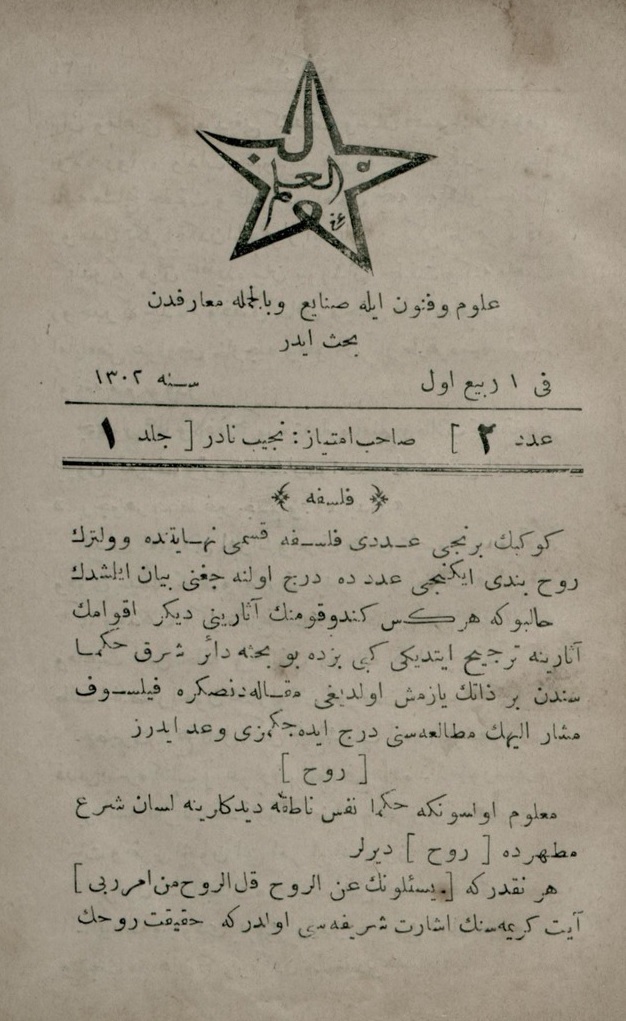 العلم
علوم وفنون ایله صنایع وبالجمله معارفدن
بحث ایدر
فی ١ ربیع اول سـنه ١٣٠٢
عدد ٢ ] صاحب امتیاز : نجیب نادر [ جلد ١
﴿ فلسفه ﴾
كوكبك برنجی عـددی فلسـفه قسمی نهـایتنده وولترك
روح بندی ایكنجی عدد ده درج اولنه جغنی بیان ایلشدك
حالبوكه هر كس كندوقومنك آثارینی دیكر اقوامك
آثارینه ترجیح ایتدیكی كبی بزده بو بحثه دائر شرق حكمـا
سندن بر ذاتك یازمش اولدیغی مقـاله‌دنصكره فیلسـوف
مشار الیهك مطالعه‌سنی درج ایده‌جكمزی وعد ایدرز
[ روح ]
معلوم اولسونكه حكما نفس ناطقه دیدكلرینه لسان شرع
مطهرده [ روح ] دیرلر
هر نقدركه [ یسئلونك عن الروح قل الروح من امر ربی ]
آیت كریمه‌سنك اشارت شریفه‌سی اولدركه حقیقت روحك